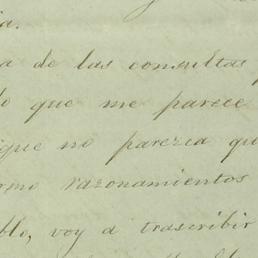 ia.
a de las consultas
lo que me parece
que no parezca qu
omo razonamientos
blo, voy a trascribir